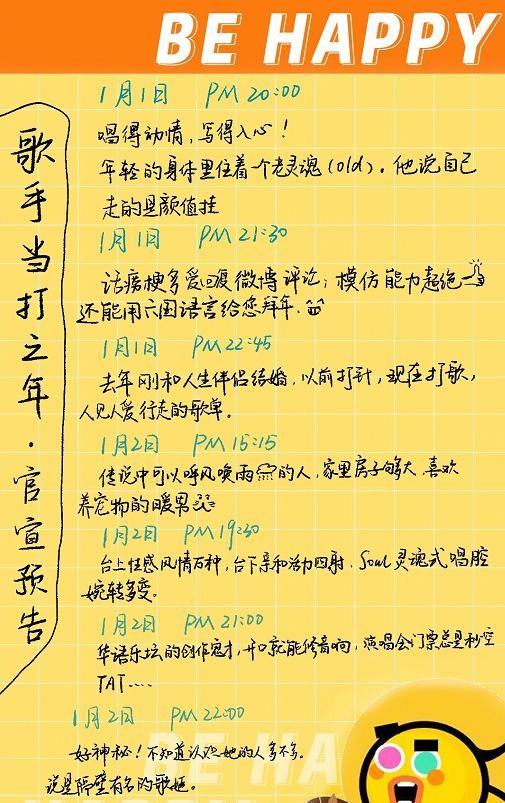 BE HAPPY
歌手当打之年·官宣预告
1月1日 PM 20:00
唱得动情，写得入心！
年轻的身体里住着一个老灵魂(old)。他说自己
走的是颜值挂
1月1日 PM 21:30
话痨梗多爱回复微博评论；模仿能力超绝
还能用六国语言给您拜年.
1月1日 PM 22:45
去年刚和人生伴侣结婚，以前打针，现在打歌，
人见人爱行走的歌单。
1月2日 PM 15:15
传说中可以呼风唤雨的人，家里房子够大 喜欢
养宠物的暖男
1月2日 PM 19:30
台上性感风情万种，台下亲和活力四射. Soul灵魂式唱腔
婉转多变。
1月2日 PM 21:00
华语乐坛的创作鬼才，开口就能修音响，演唱会门票总是秒空
TAT....
1月2日 PM 22:00
好神秘！不知道认识她的人多不多。
说是隔壁有名的歌姬。
BE HA